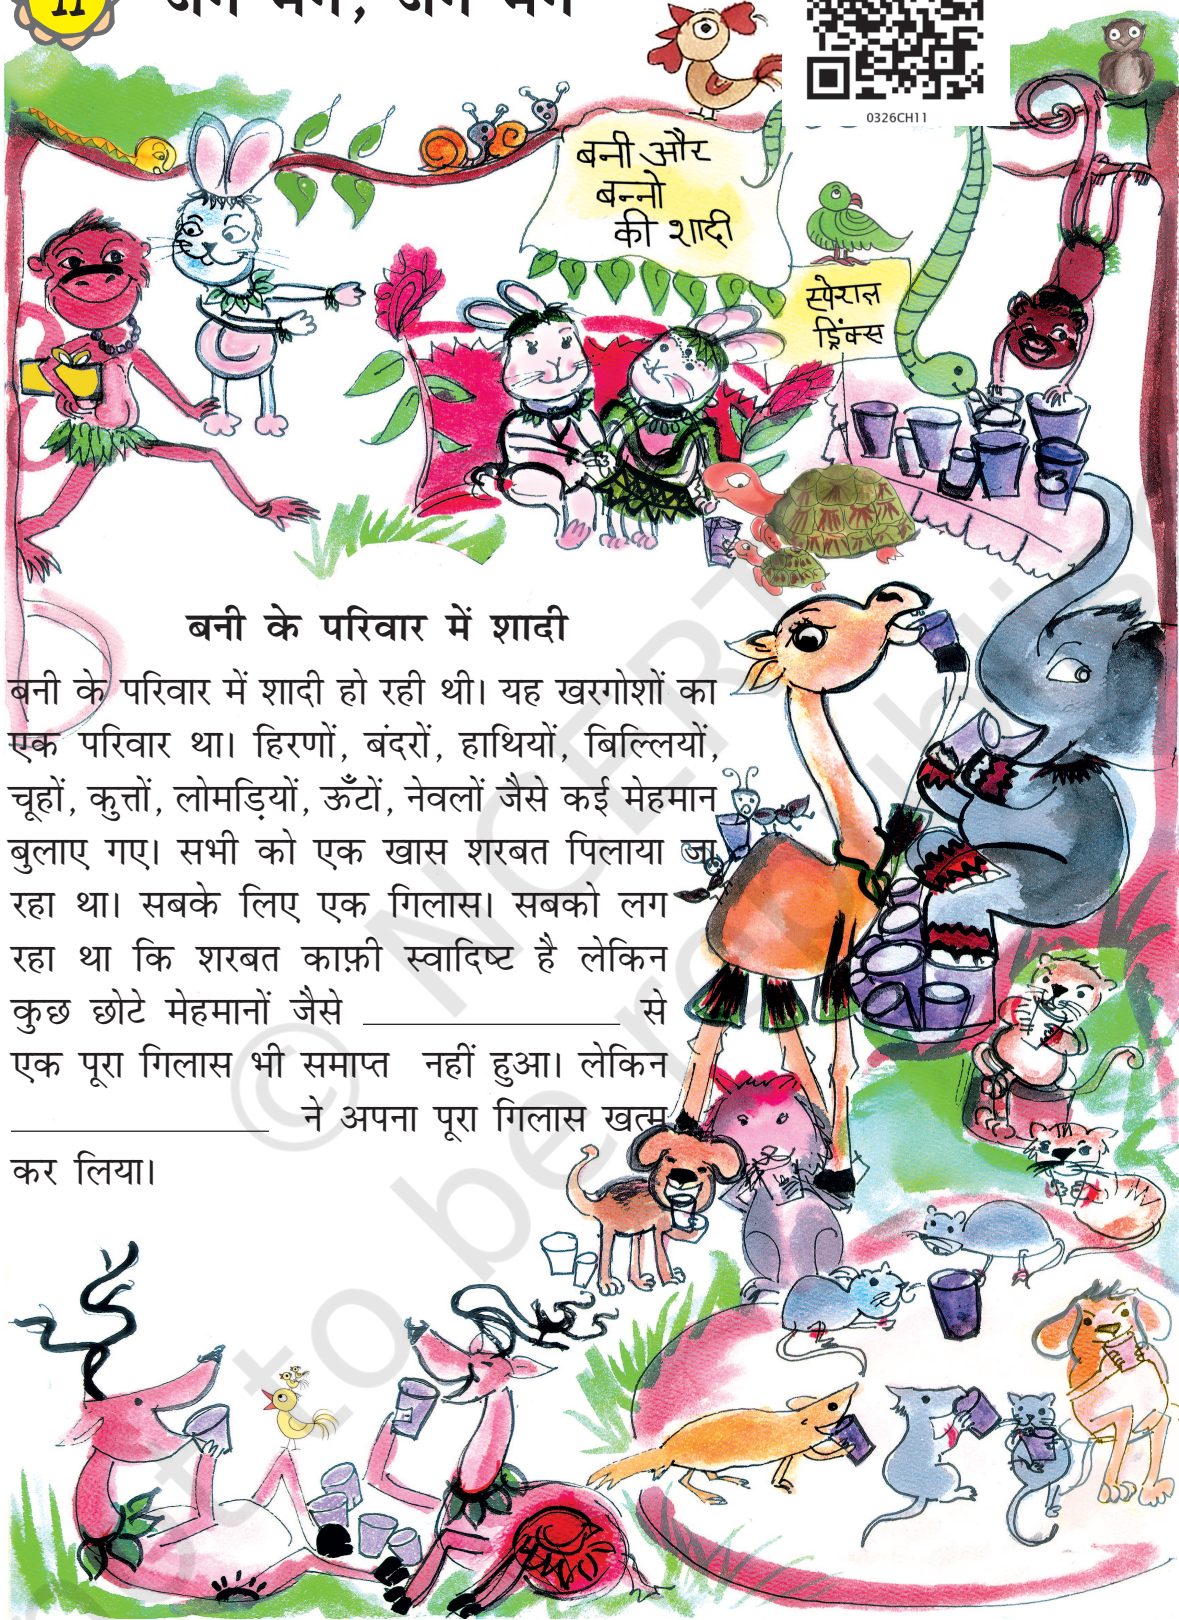 11
0326CH11
बनी और
बन्नो
की शादी
स्पेशल
ड्रिंक्स
बनी के परिवार में शादी
बनी के परिवार में शादी हो रही थी। यह खरगोशों का
एक परिवार था। हिरणों, बंदरों, हाथियों, बिल्लियों,
चूहों, कुत्तों, लोमड़ियों, ऊँटों, नेवलों जैसे कई मेहमान
बुलाए गए। सभी को एक खास शरबत पिलाया जा
रहा था। सबके लिए एक गिलास। सबको लग
रहा था कि शरबत काफ़ी स्वादिष्ट है लेकिन
कुछ छोटे मेहमानों जैसे ____________ से
एक पूरा गिलास भी समाप्त नहीं हुआ। लेकिन
____________ ने अपना पूरा गिलास खत्म
कर लिया।
© NCERT
not to be republished